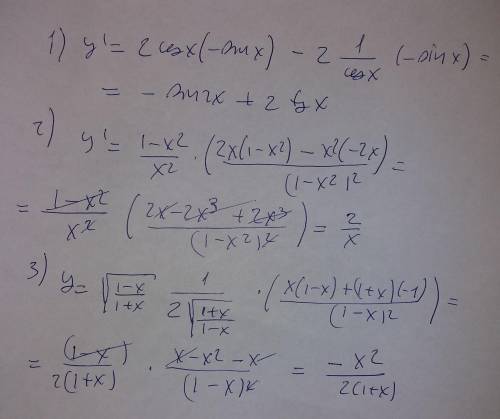 1) y' = 2 cos x (-sin x) - 2 1/cos x (-sin x) =
= - sin 2x + 2 tg x
2) y' = (1-x²)/x² · (2x(1-x²) - x²(-2x))/(1-x²)² =
= (1-x²)/x² ((2x-2x³+2x³)/(1-x²)²) = 2/x
3) y = √((1-x)/(1+x)) 1/(2√((1+x)/(1-x))) · (x(1-x)+(1+x)(-1))/(1-x)² =
= (1-x)/(2(1+x)) · (x-x²-x)/(1-x)² = -x²/(2(1+x))